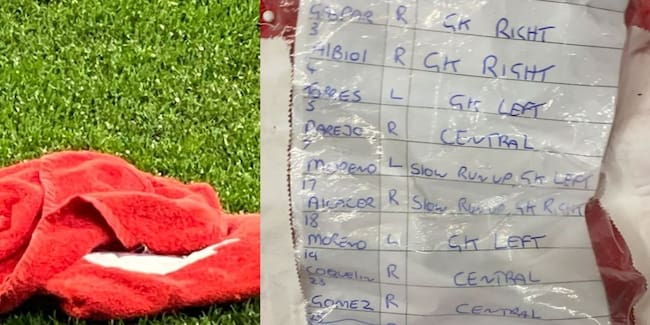 GASPAR R GK RIGHT
3
ALBIOL R GK RIGHT
4
TORRES L GK LEFT
5
PAREJO R CENTRAL
7
MORENO L SLOW RUN UP, GK LEFT
17
ALCACER R SLOW RUN UP, GK RIGHT
18
MORENO L GK LEFT
14
COQUELIN R CENTRAL
23
GOMEZ R CENTRAL